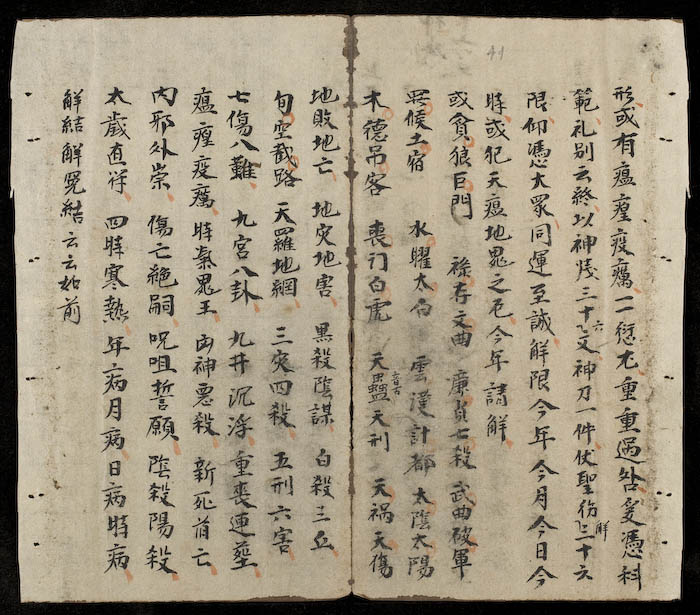 形或有瘟㾮疫癘二愆尤重重過咎爰憑科
範礼別云終以神牋三十六文神刀一件伏聖
限仰憑大眾同運至誠解限今年今月今日今
時或犯天瘟地鬼之厄今年請解
或貪狼巨門 祿存文曲 廉貞七殺 武曲破軍
羅睺土宿 水曜太白 雲漢計都 太陰太陽
木德吊客 喪門白虎 天蠱天刑 天禍天傷
地敗地亡 地灾地害 黑殺陰謀 白殺三丘
旬空截路 天羅地網 三灾四殺 五刑六害
七傷八難 九宮八卦 九井沉浮 重喪運墓
瘟㾮疫癘 時氣鬼王 凶神惡殺 新死前亡
內邪外祟 傷亡絕嗣 呪咀誓願 陰殺陽殺
太歲直符 四時寒熱 年病月病 日病時病
解結解冤結云云如前
41